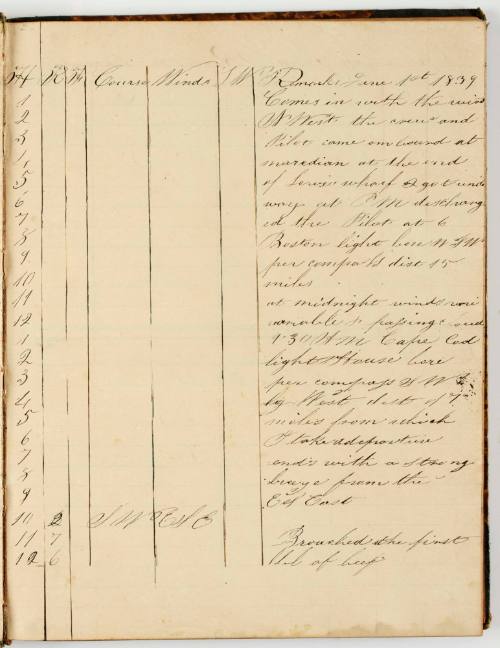 H K F Course Winds L W Remarks June 1st 1839
1 Comes in with the wind
2 W West the crew and
3 Pilot came on bound at
4 maredian at the end
5 of wharf & got und
6 way at PM discharg
7 ed the Pilot at 6
8 Boston light bore
9 per compass dist 15
10 miles
11 at midnight winds vari
12 & passing
1 1.30 AM Cape Cod
2 light House bore
3 per compass S W
4 by West dist of 7
5 miles from which
6 I take a departure
7 ends with a strong
8 breze from the
9 East
10 2 S W E S E
11 7 Broached the first
12 6 bbl of beef